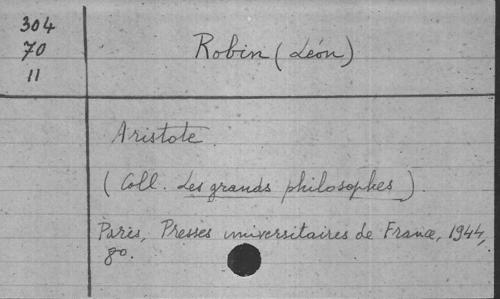 304
70
11
Robin (Léon)
Aristote.
(Coll. Les grands philosophes).
Paris, Presses universitaires de France, 1944,
8o.